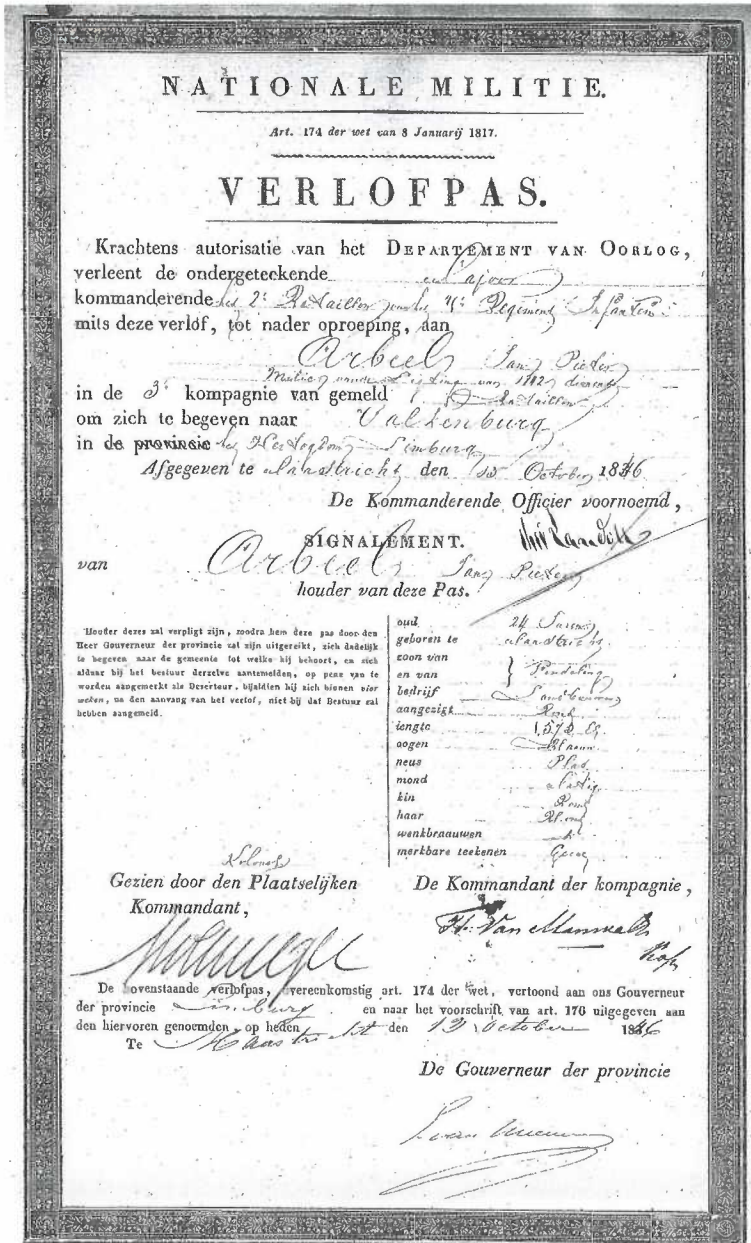 NATIONALE MILITIE.
Art. 174 der wet van 8 Januarij 1817.
VERLOFPAS.
Krachtens autorisatie van het DEPARTEMENT VAN OORLOG,
verleent de ondergeteekende Majoor
kommanderende het 2e Bataillon van het Regement Infanterie
mits deze verlof, tot nader oproeping, aan
Arbeel Jan Pieter
van de Ligting van
in de 3e kompagnie van gemeld Bataillon
om zich te begeven naar Valkenburg
in de provincie het Hertogdom Limburg
Afgegeven te Maastricht den October 1846
De Kommanderende Officier voornoemd,
SIGNALEMENT.
van Arbeel Jan Pieter
houder van deze Pas.
Houder dezes zal verpligt zijn, zoodra hem deze pas door den
Heer Gouverneur der provincie zal zijn uitgereikt, zich dadelijk
te begeven naar de gemeente tot welke hij behoort, en zich
aldaar bij het bestuur derzelve aantemelden, op pene van te
worden aangemerkt als Deserteur, bijaldien hij zich binnen vier
weken, na den aanvang van het verlof, niet bij dat Bestuur zal
hebben aangemeld.
oud 24 Jaren
geboren te Maastricht
zoon van
en van } Vondeling
bedrijf Landbouwer
aangezigt Rond
lengte 1,572 El
oogen Blaauw
neus Plat
mond Matig
kin Rond
haar Blond
wenkbraauwen
merkbare teekenen Geene
Kolonel
Gezien door den Plaatselijken
Kommandant,
De Kommandant der kompagnie,
De bovenstaande verlofpas, overeenkomstig art. 174 der wet, vertoond aan ons Gouverneur
der provincie Limburg en naar het voorschrift van art. 176 uitgegeven aan
den hiervoren genoemden, op heden den 13 October 1846
Te Maastricht
De Gouverneur der provincie